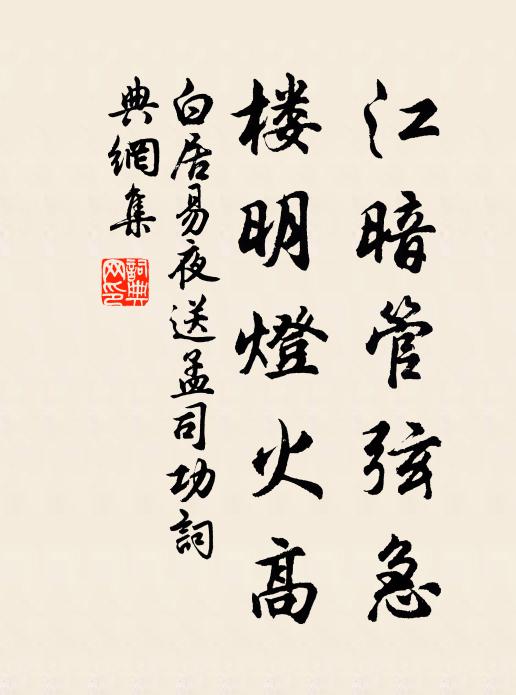 江暗管弦急
楼明燈火高
白居易夜送孟司功詞
典網集
詞典网印